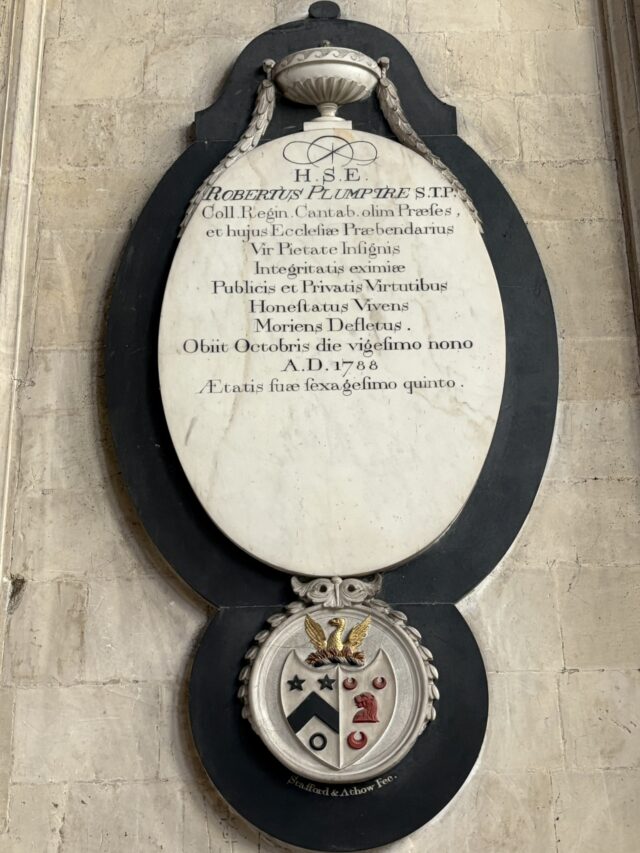 H.S.E.
ROBERTUS PLUMPTRE S.T.P.
Coll. Regin. Cantab. olim Præſes,
et hujus Eccleſiæ Præbendarius
Vir Pietate Inſignis
Integritatis eximiæ
Publicis et Privatis Virtutibus
Honeſtatus Vivens
Moriens Defletus.
Obiit Octobris die vigeſimo nono
A.D. 1788
Ætatis ſuæ ſexageſimo quinto.
Stafford & Athow Fec.